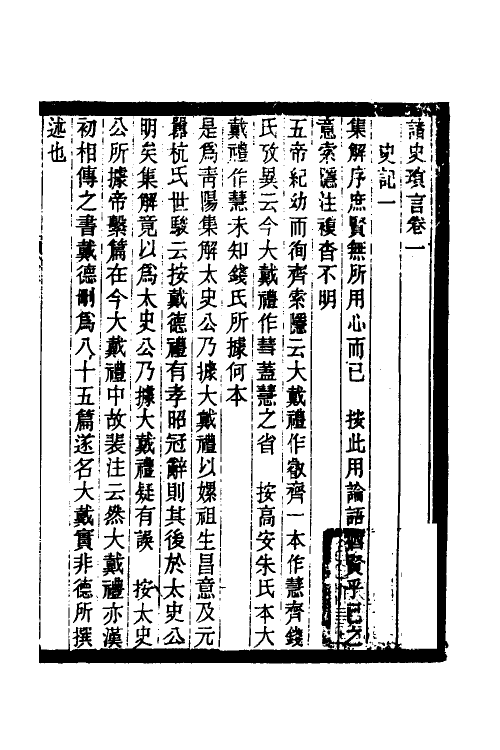 諸史瑣言卷一
史記一
集解序庶賢無所用心而已　按此用論語猶賢乎已之
意索隱注複沓不明
五帝紀幼而徇齊索隱云大戴禮作叡齊一本作慧齊錢
氏攷異云今大戴禮作彗蓋慧之省　按高安朱氏本大
戴禮作慧未知錢氏所據何本
是爲靑陽集解太史公乃據大戴禮以嫘祖生昌意及元
囂杭氏世駿云按戴德禮有孝昭冠辭則其後於太史公
明矣集解竟以爲太史公乃據大戴禮疑有誤　按太史
公所據帝繫篇在今大戴禮中故裴注云然大戴禮亦漢
初相傳之書戴德刪爲八十五篇遂名大戴實非德所撰
述也